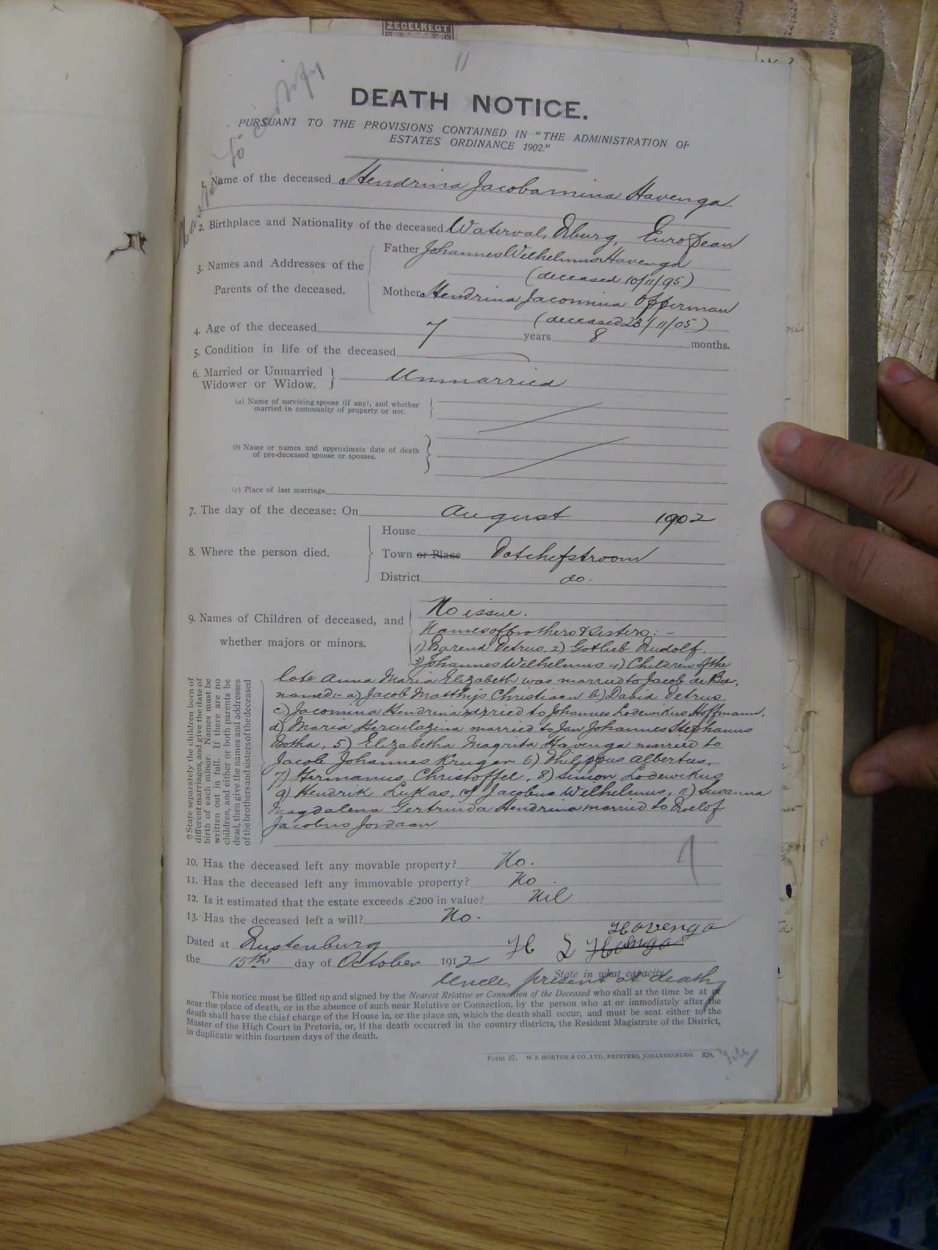 ZEGELREGT
11
DEATH NOTICE.
PURSUANT TO THE PROVISIONS CONTAINED IN "THE ADMINISTRATION OF
ESTATES ORDINANCE 1902."
1. Name of the deceased Hendrina Jacobamina Havenga
2. Birthplace and Nationality of the deceased Waterval, Rburg, European
3. Names and Addresses of the Parents of the deceased.
Father Johannes Wilhelmus Havenga
(deceased 10/11/95)
Mother Hendrina Jacomina Offerman
(deceased 23/11/05)
4. Age of the deceased 7 years 8 months.
5. Condition in life of the deceased
6. Married or Unmarried
Widower or Widow. Unmarried
(a) Name of surviving spouse (if any), and whether
married in community of property or not.
(b) Name or names and approximate date of death
of pre-deceased spouse or spouses.
(c) Place of last marriage
7. The day of the decease: On August 1902
8. Where the person died.
House
Town or Place Potchefstroom
District do.
9. Names of Children of deceased, and
whether majors or minors.
No issue.
Names of brothers & sisters: -
1) Barend Petrus, 2) Gotlieb Rudolf.
3) Johannes Wilhelmus, 4) Children of the
late Anna Maria Elizabeth was married to Jacob de Bee.
named:- a) Jacob Matthijs Christiaan b) David Petrus
c) Jacomina Hendrina married to Johannes Lodewikus Hoffmann,
d) Maria Herculazina married to Jan Johannes Stephanus
Botha, 5) Elizabetha Magrita Havenga married to
Jacob Johannes Kruger 6) Philippus Albertus,
7) Hermanus Christoffel, 8) Simon Lodewikus
9) Hendrik Lukas, 10) Jacobus Wilhelmus, 11) Susanna
Magdalena Gertruida Hendrina married to Roelof
Jacobus Jordaan
State separately the children born of
different marriages, and give the date of
birth of each minor. Names must be
written out in full. If there are no
children, and either or both parents be
dead, then give the names and addresses
of the brothers and sisters of the deceased
10. Has the deceased left any movable property? No.
11. Has the deceased left any immovable property? No
12. Is it estimated that the estate exceeds £200 in value? Nil
13. Has the deceased left a will? No.
Havenga
Dated at Rustenburg H L
the 15th day of October 1912
State in what capacity
Uncle, present at death
This notice must be filled up and signed by the Nearest Relative or Connection of the Deceased who shall at the time be at or
near the place of death, or in the absence of such near Relative or Connection, by the person who at or immediately after the
death shall have the chief charge of the House in, or the place on, which the death shall occur, and must be sent either to the
Master of the High Court in Pretoria, or, if the death occurred in the country districts, the Resident Magistrate of the District,
in duplicate within fourteen days of the death.
Form 37. W. E. HORTOR & CO., LTD., PRINTERS, JOHANNESBURG.